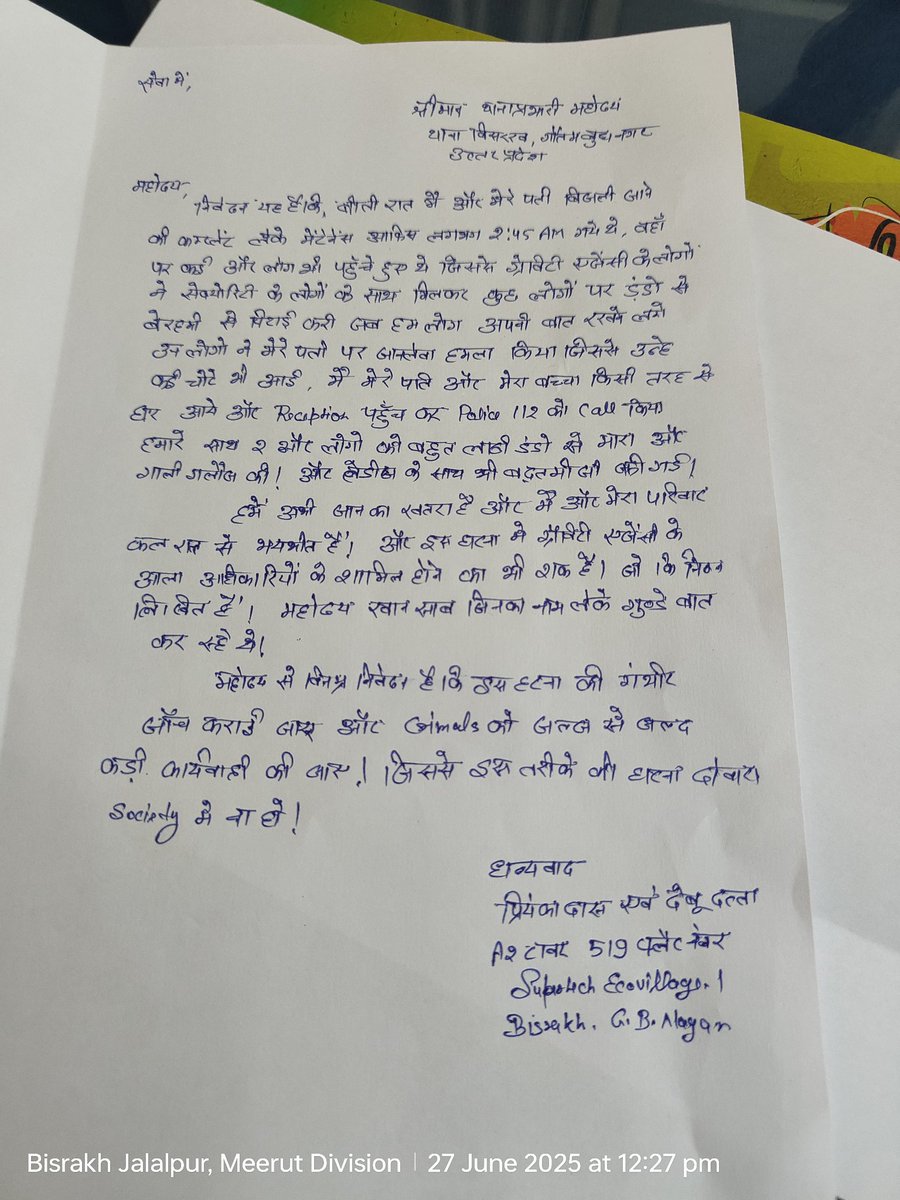 सेवा में,
श्रीमान थानाप्रभारी महोदय
थाना बिसरख, गौतम बुद्ध नगर
उत्तर प्रदेश
महोदय,
निवेदन यह है कि, बीती रात मैं और मेरे पती बिजली जाने
की कम्प्लेंट लेके मेंटेनेंस आफिस लगभग 2:45 AM गये थे, वहाँ
पर कई और लोग भी पहुँचे हुए थे जिसके ग्रेविटी एजेंसी के लोगों
ने सेक्योरिटी के लोगों के साथ मिलकर कुछ लोगों पर डंडो से
बेरहमी से पिटाई करी जब हम लोग अपनी बात रखने लगे
उन लोगो ने मेरे पती पर जानलेवा हमला किया जिससे उन्हे
कई चोटे भी आई, मैं मेरे पति और मेरा बच्चा किसी तरह से
घर आये और Reception पहुँच कर Police 112 को Call किया
हमारे साथ 2 और लोगो को बहुत लाठी डंडो से मारा और
गाली गलौज की! और लेडीज के साथ भी बद्तमीजी करी गई!
हमें अभी जान का खतरा है और मैं और मेरा परिवार
कल रात से भयभीत है! और इस घटना मे ग्रेविटी एजेंसी के
आला अधिकारियों के शामिल होने का भी शक है। जो कि निम्न
लिखित है! महोदय खान साब जिनका नाम लेके गुण्डे बात
कर रहे थे!
महोदय से विनम्र निवेदन है कि इस घटना की गंभीर
जाँच कराई जाए और को जल्द से जल्द
कड़ी कार्यवाही की जाए! जिससे इस तरीके की घटना दोबारा
Society मे ना हो!
धन्यवाद
प्रियंका दास एवं देबू दत्ता
A2 टावर 519 फ्लैट नंबर
Supertech Ecovillage.1
Bisrakh. G.B. Nagar
Bisrakh Jalalpur, Meerut Division | 27 June 2025 at 12:27 pm